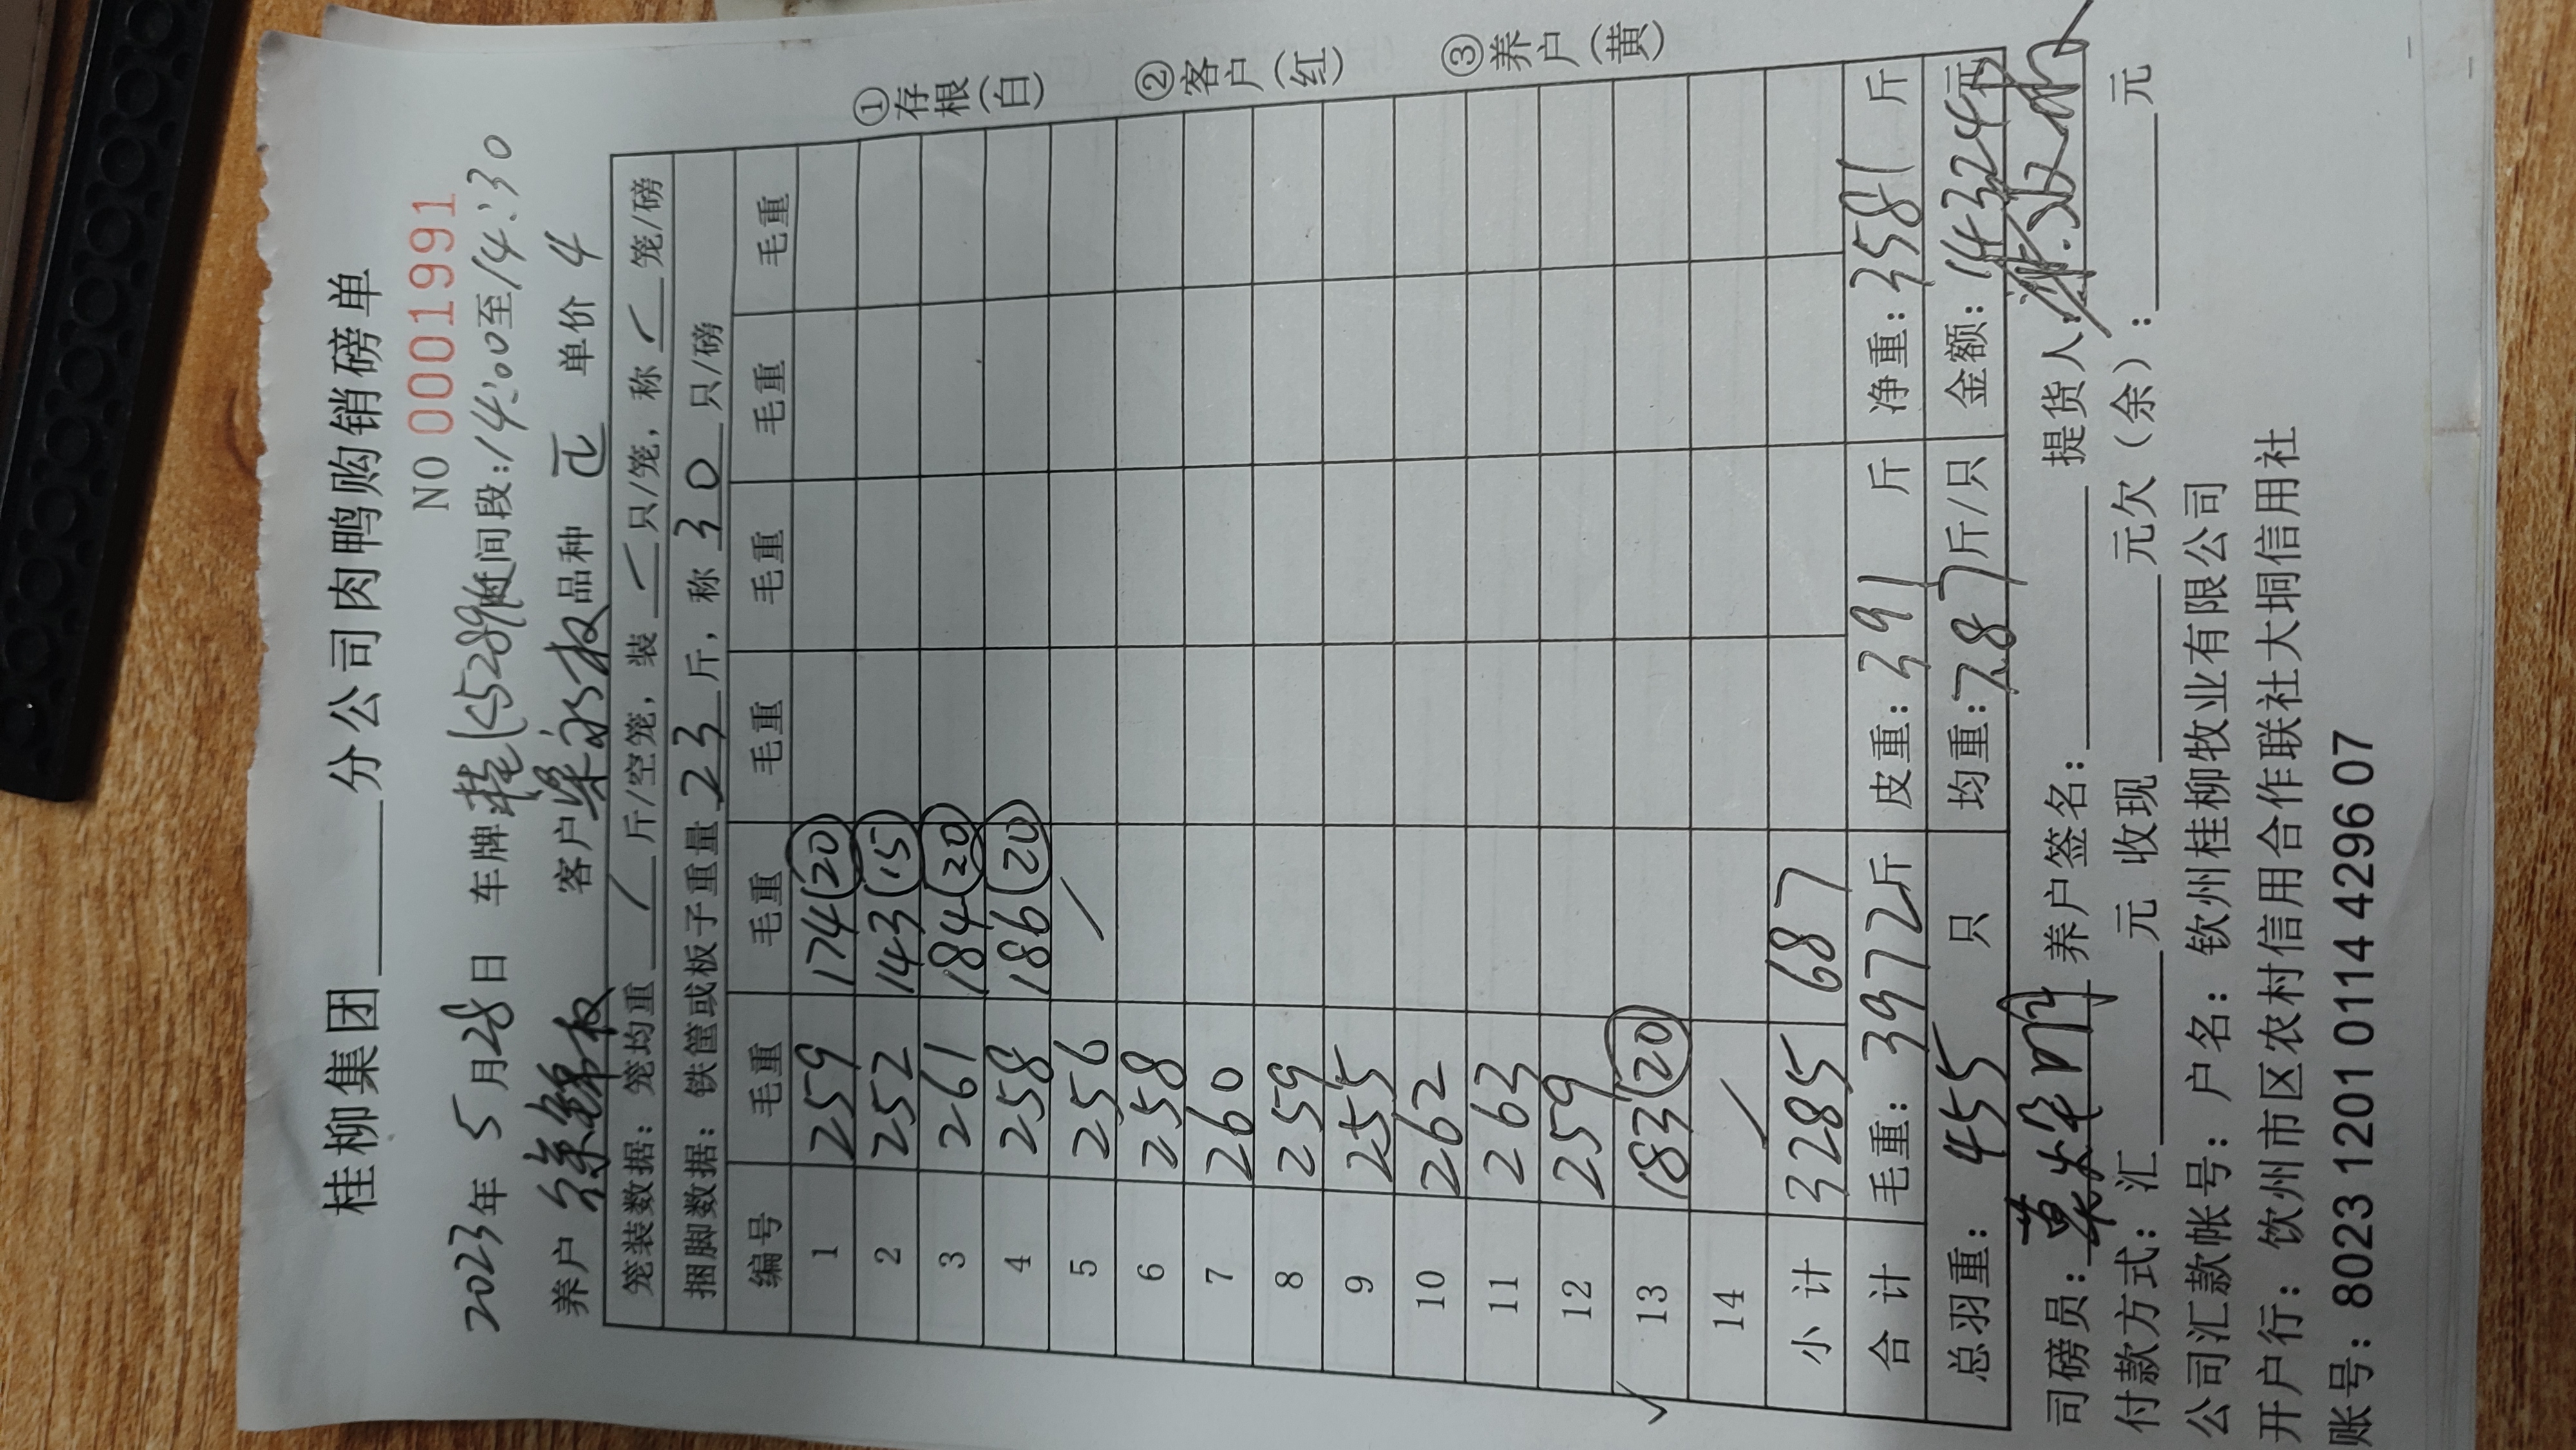 桂柳集团 分公司肉鸭购销磅单
NO 0001991
2023年 5月28日 车牌桂K52891时间段:14:00至14:30
养户 客户梁永权品种 正 单价 4
笼装数据: 笼均重 / 斤/空笼, 装 / 只/笼, 称 / 笼/磅
捆脚数据: 铁筐或板子重量 23 斤, 称 30 只/磅
编号 毛重 毛重 毛重 毛重 毛重 毛重
1 259 174(20)
2 252 143(15)
3 261 184(20)
4 258 186(20)
5 256 /
6 258
7 260
8 259
9 255
10 262
11 263
12 259
13 183(20)
14 /
小计 3285 687
合计 毛重: 3972斤 皮重: 391 斤 净重: 3581 斤
总羽重: 455 只 均重: 7.87斤/只 金额: 14324元
司磅员: 养户签名: 提货人:
付款方式: 汇 元 收现 元欠(余): 元
公司汇款帐号: 户名: 钦州桂柳牧业有限公司
开户行: 饮州市区农村信用合作联社大垌信用社
账号: 8023 1201 0114 4296 07
①存根(白)
②客户(红)
③养户(黄)